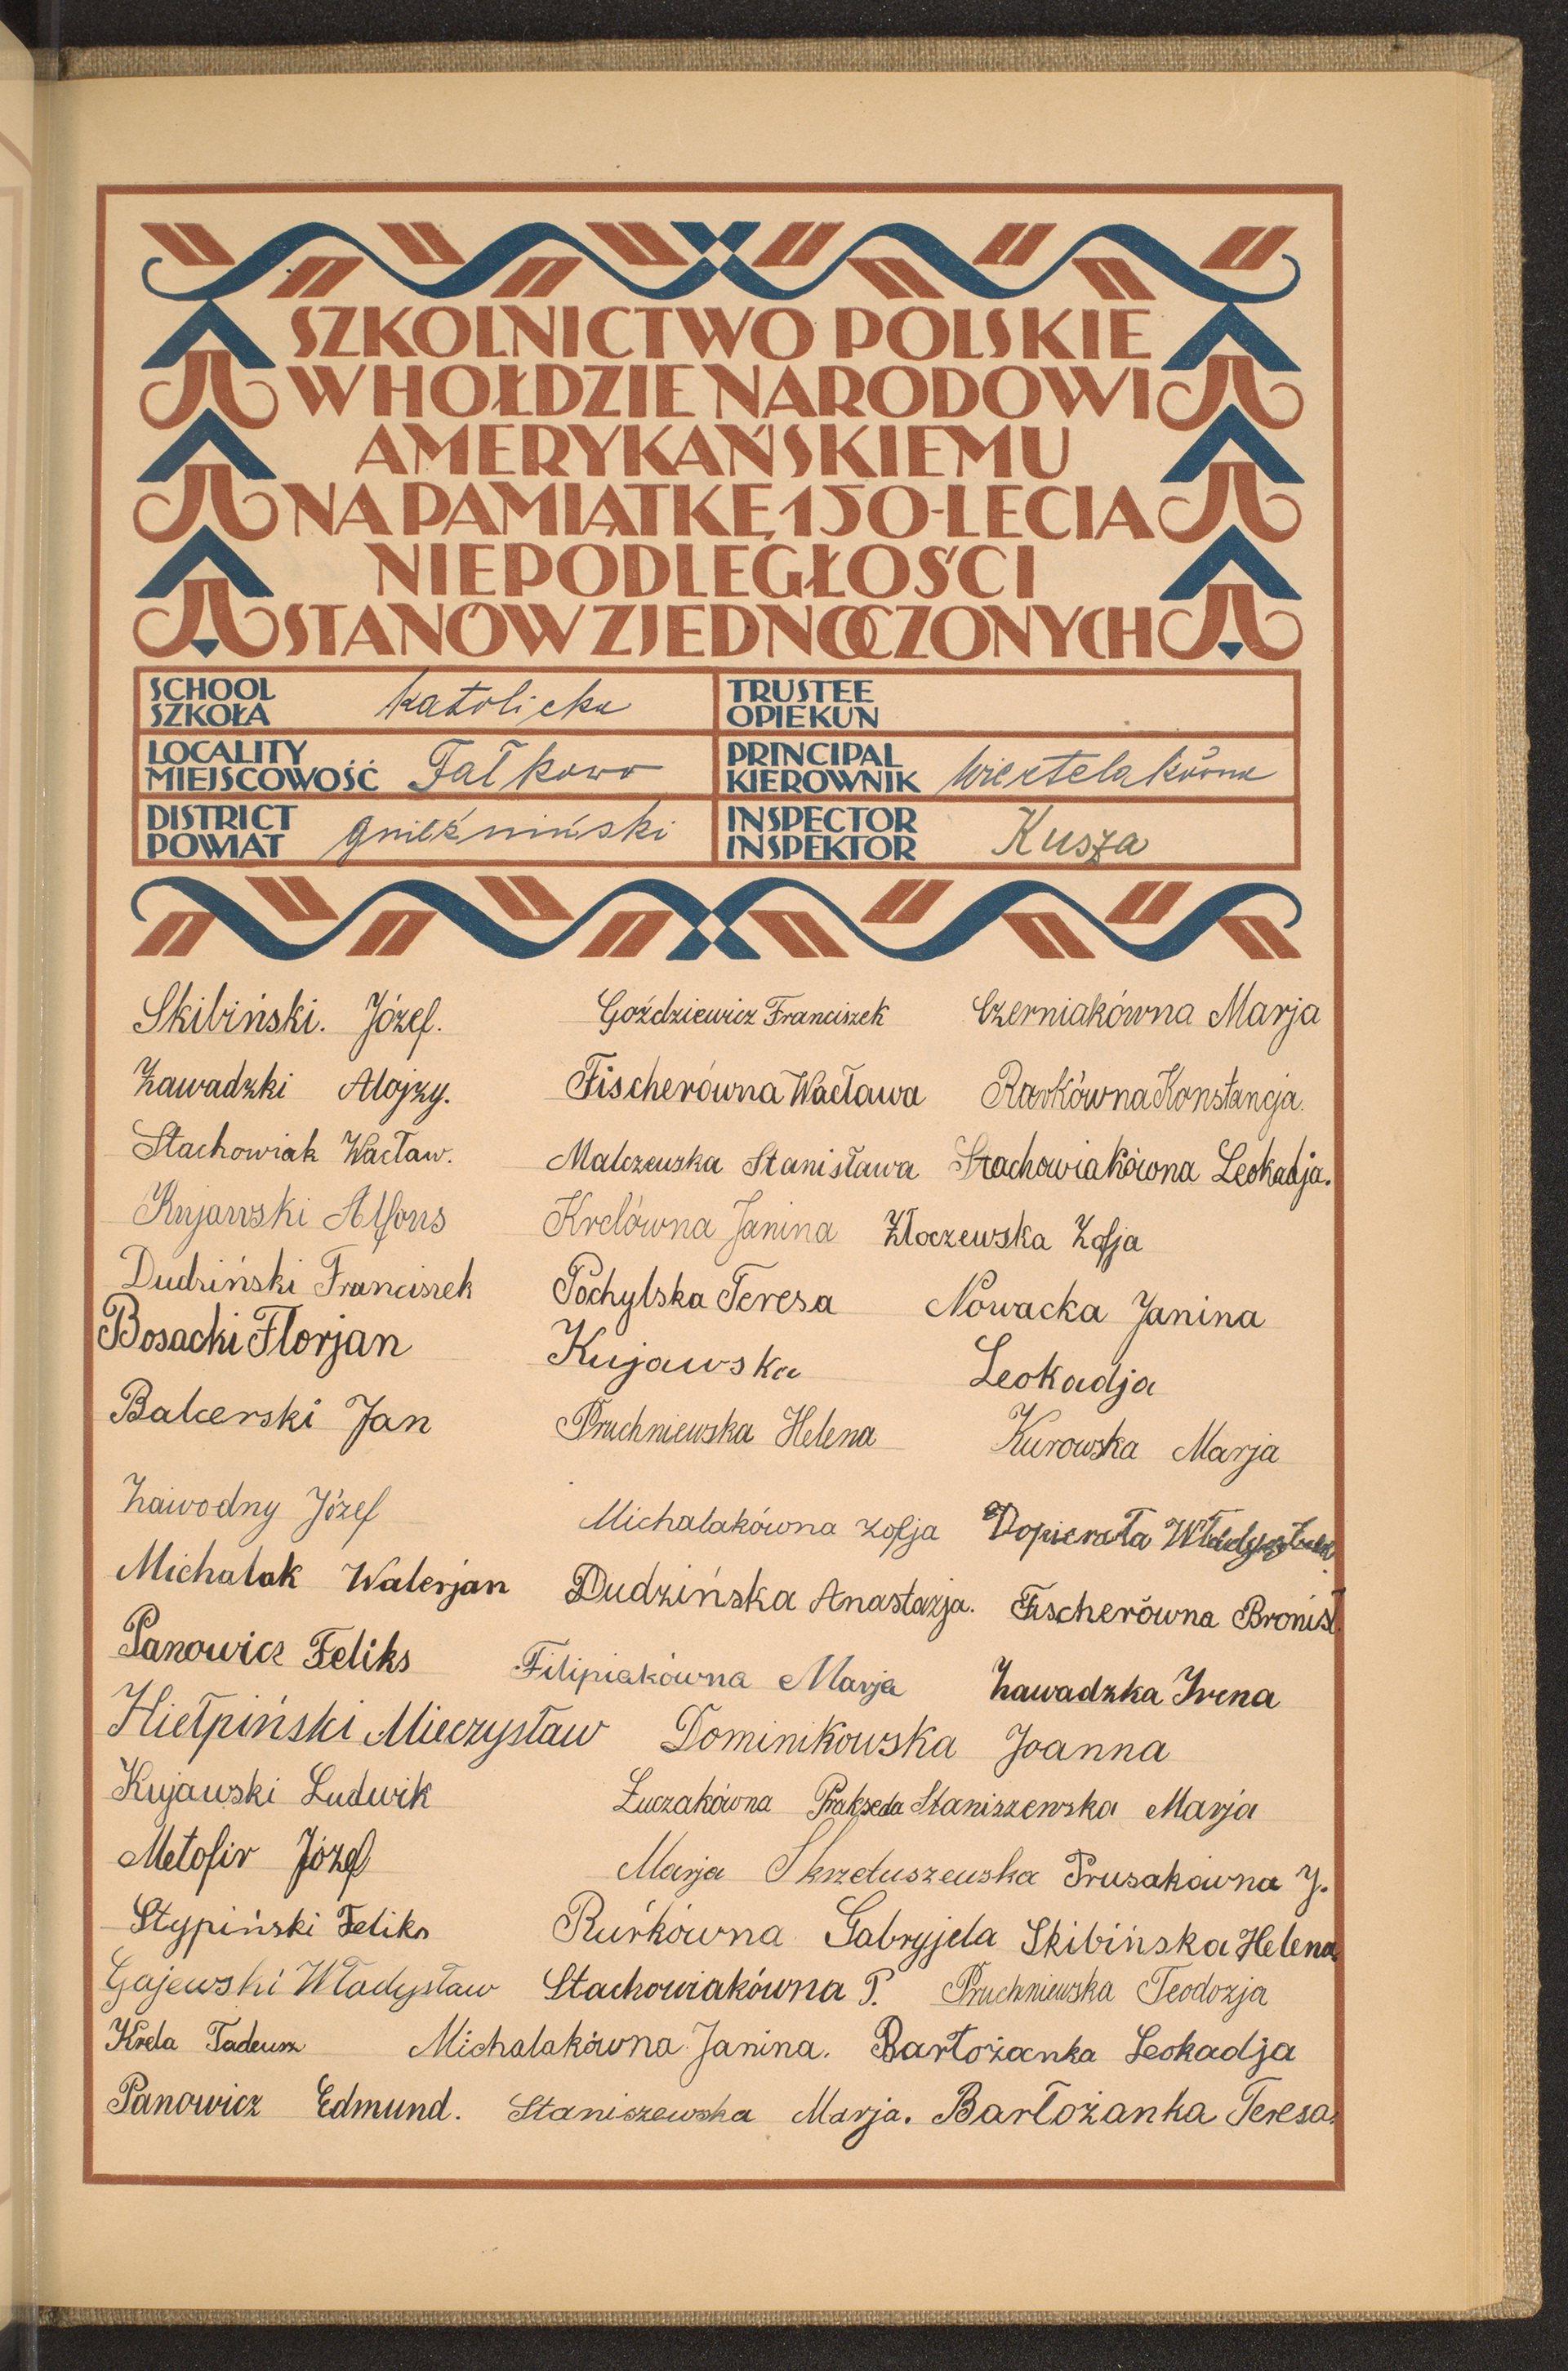 SZKOLNICTWO POLSKIE
W HOŁDZIE NARODOWI
AMERYKAŃSKIEMU
NA PAMIĄTKĘ 150-LECIA
NIEPODLEGŁOŚCI
STANÓW ZJEDNOCZONYCH
SCHOOL
SZKOŁA katolicka
TRUSTEE
OPIEKUN
LOCALITY
MIEJSCOWOŚĆ Fałkowo
PRINCIPAL
KIEROWNIK Wiertelakówna
DISTRICT
POWIAT gnieźniński
INSPECTOR
INSPEKTOR Kusza
Skibiński. Józef. Goździewicz Franciszek Czerniakówna Marja
Zawadzki Alojzy. Fischerówna Wacława Rarkówna Konstancja.
Stachowiak Wacław. Malczewska Stanisława Stachowiakówna Leokadja.
Kujawski Alfons Krelówna Janina Złoczewska Zofja
Dudziński Franciszek Pochylska Teresa Nowacka Janina
Bosacki Florjan Kujawska Leokadja
Balcerski Jan Pruchniewska Helena Kurowska Marja
Zawodny Józef Michalakówna Zofja Dopierała
Michalak Walerjan Dudzińska Anastazja. Fischerówna Bronisł.
Panowicz Feliks Filipiakówna Marja Zawadzka Irena
Hiełpiński Mieczysław Dominikowska Joanna
Kujawski Ludwik Łuczakówna Prakseda Staniszewska Marja
Metofir Józef Marja Skrzetuszewska Prusakówna J.
Stypiński Feliks Rurkówna Gabryjela Skibińska Helena
Gajewski Władysław Stachowiakówna P. Pruchniewska Teodozja
Krela Tadeusz Michalakówna Janina. Bartożanka Leokadja
Panowicz Edmund. Staniszewska Marja. Bartożanka Teresa.